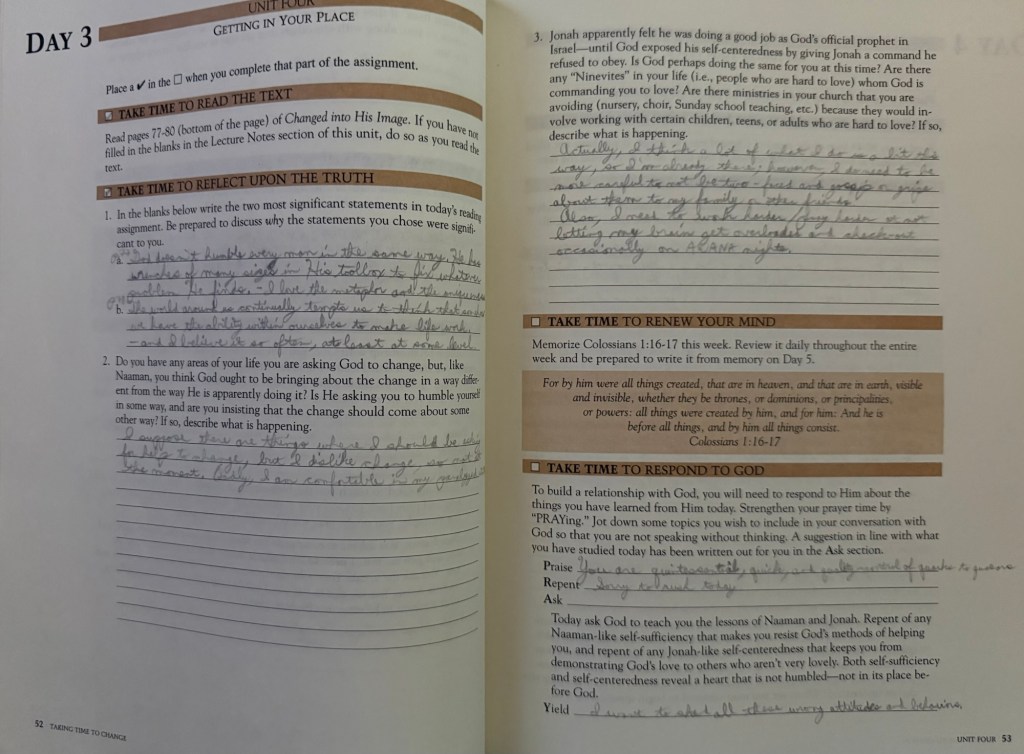 UNIT FOUR
DAY 3
GETTING IN YOUR PLACE
Place a ✔ in the ☐ when you complete that part of the assignment.
☑ TAKE TIME TO READ THE TEXT
Read pages 77-80 (bottom of the page) of Changed into His Image. If you have not
filled in the blanks in the Lecture Notes section of this unit, do so as you read the
text.
☑ TAKE TIME TO REFLECT UPON THE TRUTH
1. In the blanks below write the two most significant statements in today's reading
assignment. Be prepared to discuss why the statements you chose were signifi-
cant to you.
a. God doesn't humble every man in the same way. He has
wrenches of many sizes in His toolbox to fix whatever
problem He finds. - I love the metaphor and the
b. The world around us continually tempts us to think that
we have the ability within ourselves to make life work.
- and I believe it so often, at least at some level
2. Do you have any areas of your life you are asking God to change, but, like
Naaman, you think God ought to be bringing about the change in a way differ-
ent from the way He is apparently doing it? Is He asking you to humble yourself
in some way, and are you insisting that the change should come about some
other way? If so, describe what is happening.
I suppose there are things where I should be
for help to change, but I dislike change, so not at
the moment. I am comfortable in my
52 TAKING TIME TO CHANGE
3. Jonah apparently felt he was doing a good job as God's official prophet in
Israel—until God exposed his self-centeredness by giving Jonah a command he
refused to obey. Is God perhaps doing the same for you at this time? Are there
any "Ninevites" in your life (i.e., people who are hard to love) whom God is
commanding you to love? Are there ministries in your church that you are
avoiding (nursery, choir, Sunday school teaching, etc.) because they would in-
volve working with certain children, teens, or adults who are hard to love? If so,
describe what is happening.
Actually, I think a lot of what I do is a bit this
way, so I'm already there; however, I do need to be
more careful to not be two-faced and gossip or gripe
about them to my family or other friends.
Also, I need to work harder/pray harder at not
letting my brain get overloaded and check-out
occasionally on AWANA nights.
☐ TAKE TIME TO RENEW YOUR MIND
Memorize Colossians 1:16-17 this week. Review it daily throughout the entire
week and be prepared to write it from memory on Day 5.
For by him were all things created, that are in heaven, and that are in earth, visible
and invisible, whether they be thrones, or dominions, or principalities,
or powers: all things were created by him, and for him: And he is
before all things, and by him all things consist.
Colossians 1:16-17
☐ TAKE TIME TO RESPOND TO GOD
To build a relationship with God, you will need to respond to Him about the
things you have learned from Him today. Strengthen your prayer time by
"PRAYing." Jot down some topics you wish to include in your conversation with
God so that you are not speaking without thinking. A suggestion in line with what
you have studied today has been written out for you in the Ask section.
Praise You are quintessential, quick, and
Repent Sorry to rush today
Ask
Today ask God to teach you the lessons of Naaman and Jonah. Repent of any
Naaman-like self-sufficiency that makes you resist God's methods of helping
you, and repent of any Jonah-like self-centeredness that keeps you from
demonstrating God's love to others who aren't very lovely. Both self-sufficiency
and self-centeredness reveal a heart that is not humbled—not in its place be-
fore God.
Yield I want to shed all these wrong attitudes and behaviors.
UNIT FOUR 53